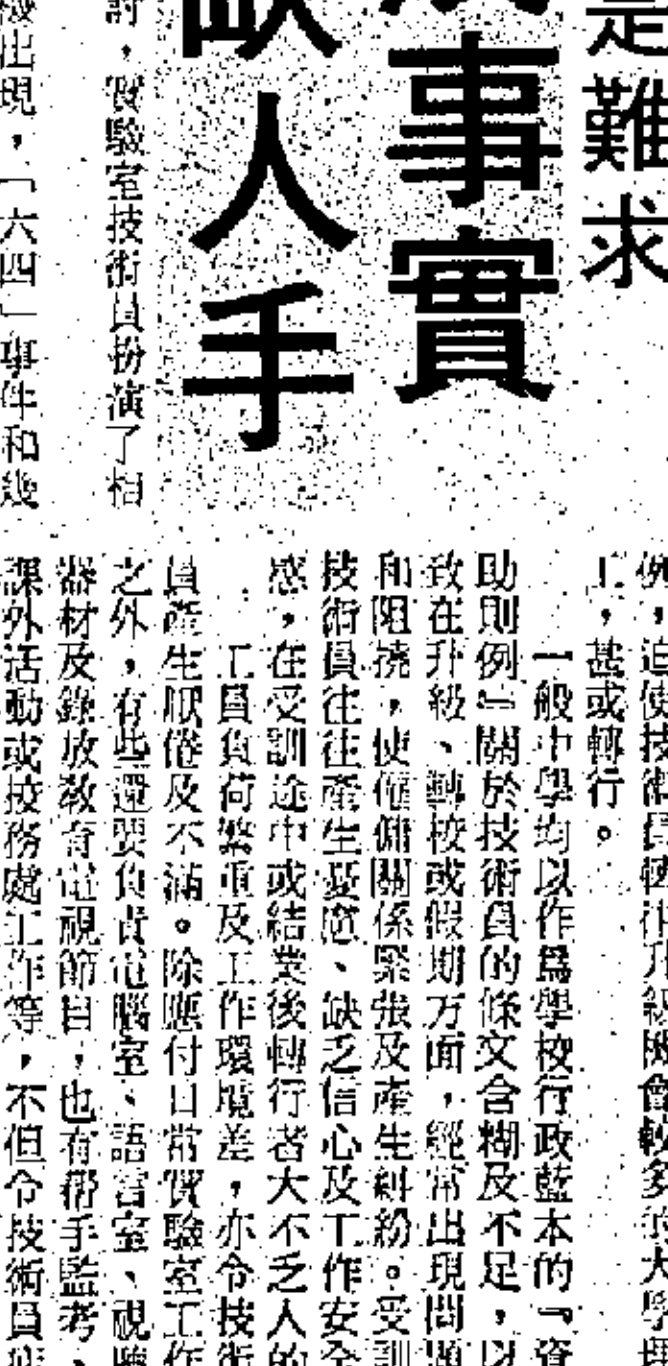 是難求
事實
缺人手
討，實驗室技術員扮演了相
出現，「六四」事件和幾
例，迫使技術員轉往升級機會較多的大學理
工，甚或轉行。
一般中學均以作為學校行政藍本的『資
助則例』關於技術員的條文含糊及不足，以
致在升級、轉校或假期方面，經常出現問題
和阻撓，使僱傭關係緊張及產生糾紛。受訓
技術員往往產生憂慮、缺乏信心及工作安全
感，在受訓途中或結業後轉行者大不乏人的
工員負荷繁重及工作環境差，亦令技術
員產生厭倦及不滿。除應付日常實驗室工作
之外，有些還要負責電腦室、語言室、視聽
器材及錄放教育電視節目，也有幫手監考、
課外活動或校務處工作等，不但令技術員